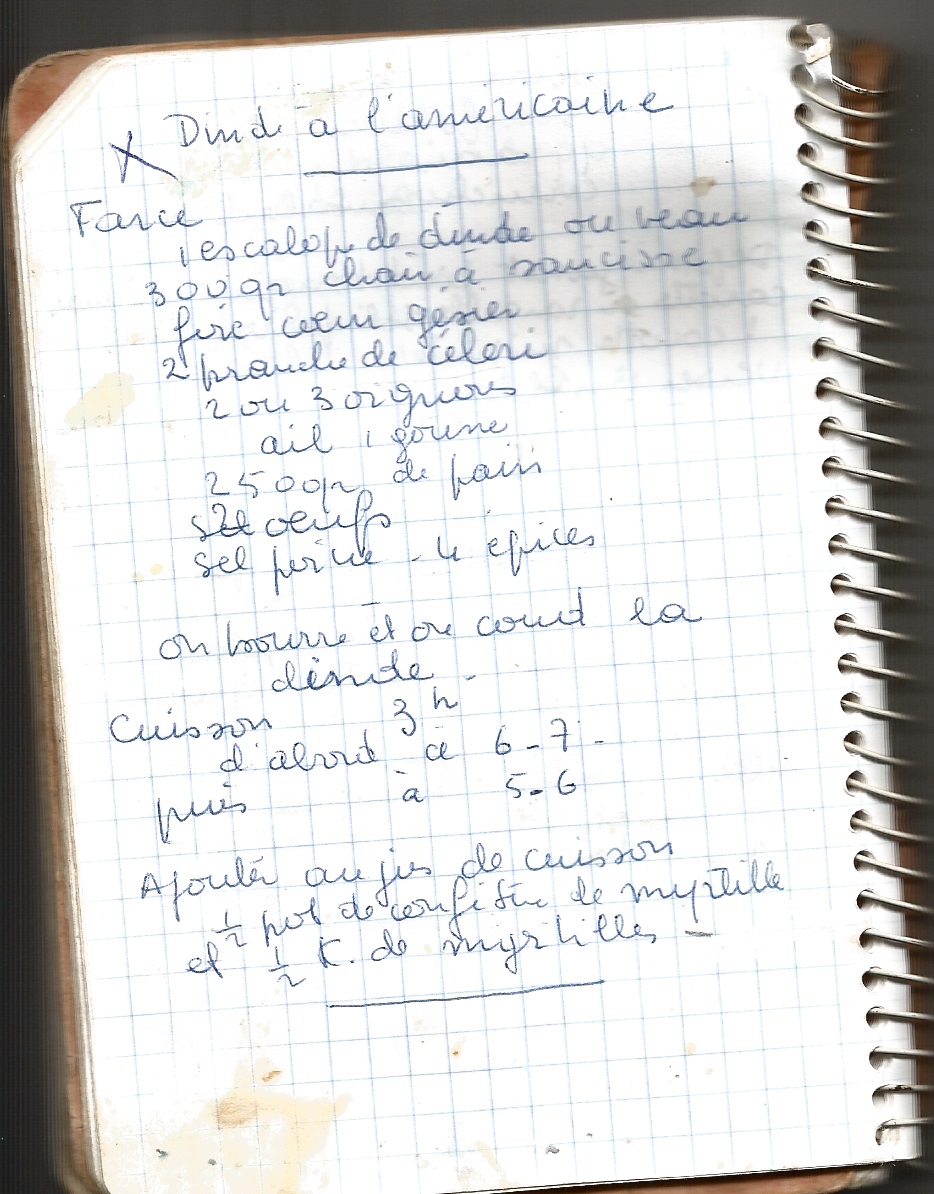 X Dinde à l'américaine
Farce
1 escalope de dinde ou veau
300gr chair à saucisse
foie coeur gésier
2 branche de céleri
2 ou 3 oignons
ail 1 gousse
250gr de pain
2 oeufs
sel poivre - 4 épices
on bourre et on coud la
dinde -
Cuisson 3h
d'abord à 6-7-
puis à 5-6
Ajouter au jus de cuisson
1/2 pot de confiture de myrtille
et 1/2 K. de myrtilles -